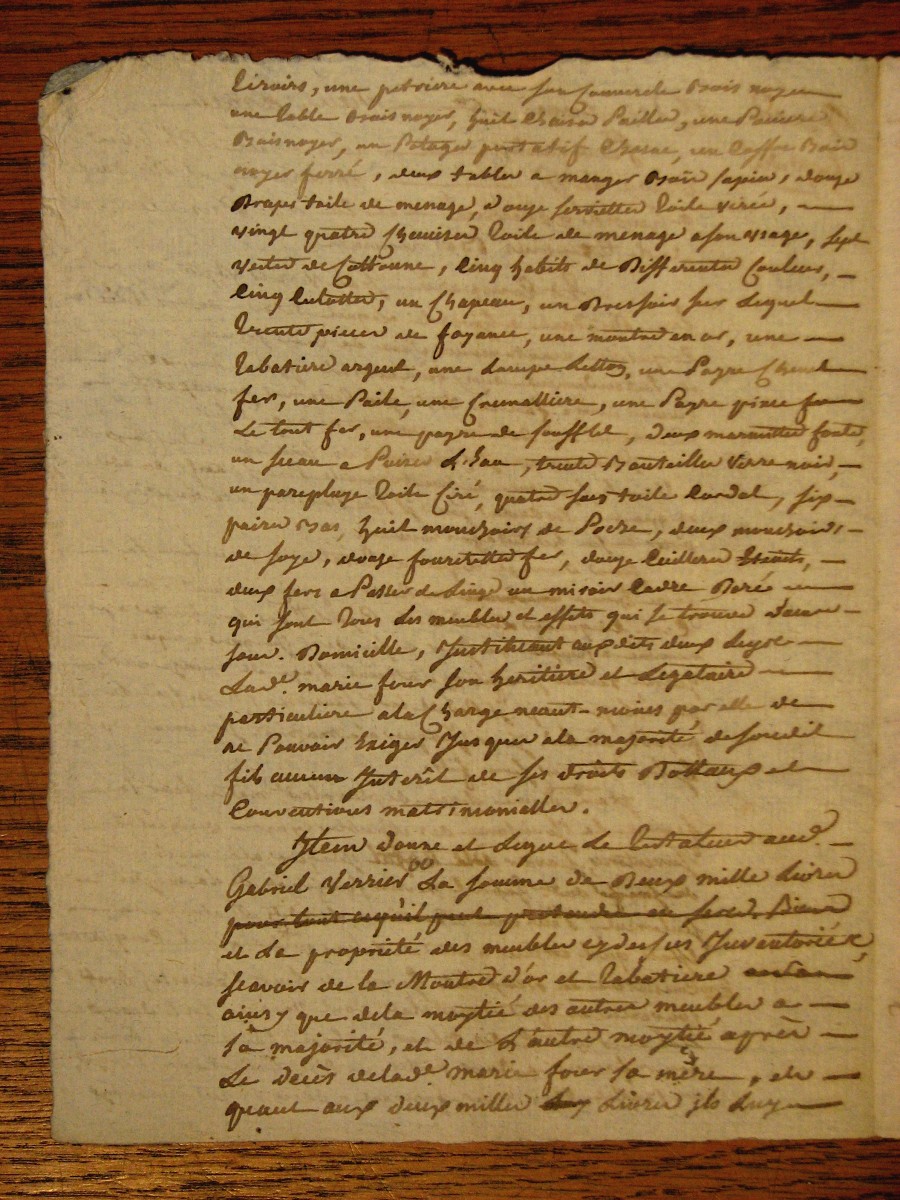 tiroirs, une petriere avec son Couvercle Bois noyer
une table Bois noyer, huit Chaises Pailles, une
Bois noyer, un Potager portatif Chesne, un Coffre Bois
noyer ferré, deux tables a manger Bois sapin, douze
Draps toile de menage, douze serviettes toile
vingt quatre Chemises toile de menage a son usage, sept
vestes de Cottonne, Cinq habits de Differentes Couleurs,
Cinq Culottes, un Chapeau, un Dressoir sur Lequel
trente pieces de fayance, une montre en or, une
tabatiere argent, une Lampe Letton, un Payre Chenet
fer, une Paile, une Crumalliere, une Payre pince fer
Le tout fer, une payre de soufflet, deux marmittes fonte,
un seau a Puiser L'Eau, trente Boutailles verre noir,
un parepluye toile Ciré, quatre sacs toile Cordat, six
paires Bas, huit mouchoirs de Poche, deux mouchoirs
de soye, douze fourcettes fer, douze Cuilleres Etaint,
deux fers a Passer de Linge un miroir Cadre Doré
qui sont tous Les meubles et effets qui se trouve dans
son Domicille, Instituant auxdits deux Legs
Lade. marie four son heritiere et Legataire
particuliere a la Charge neant-moins par elle de
ne Pouvoir Exiger Jusques a la majorité de sondit
fils aucun Interêt de ses droits Dottaux et
Conventions matrimonielles.
Item donne et Legue Le Testateur aud.
Gabriel Verrier La somme de Deux mille Livres
pour tout ce qu'il peut pretendre en ses Biens
et La proprieté des meubles cy dessus Inventoriés,
scavoir de la Montre d'or et tabatiere
ainsy que de la moytié des autres meubles a
sa majorité, et de L'autre moytié après
Le decès delade. marie four sa mère, et
quant aux deux milles Livres ils Luy